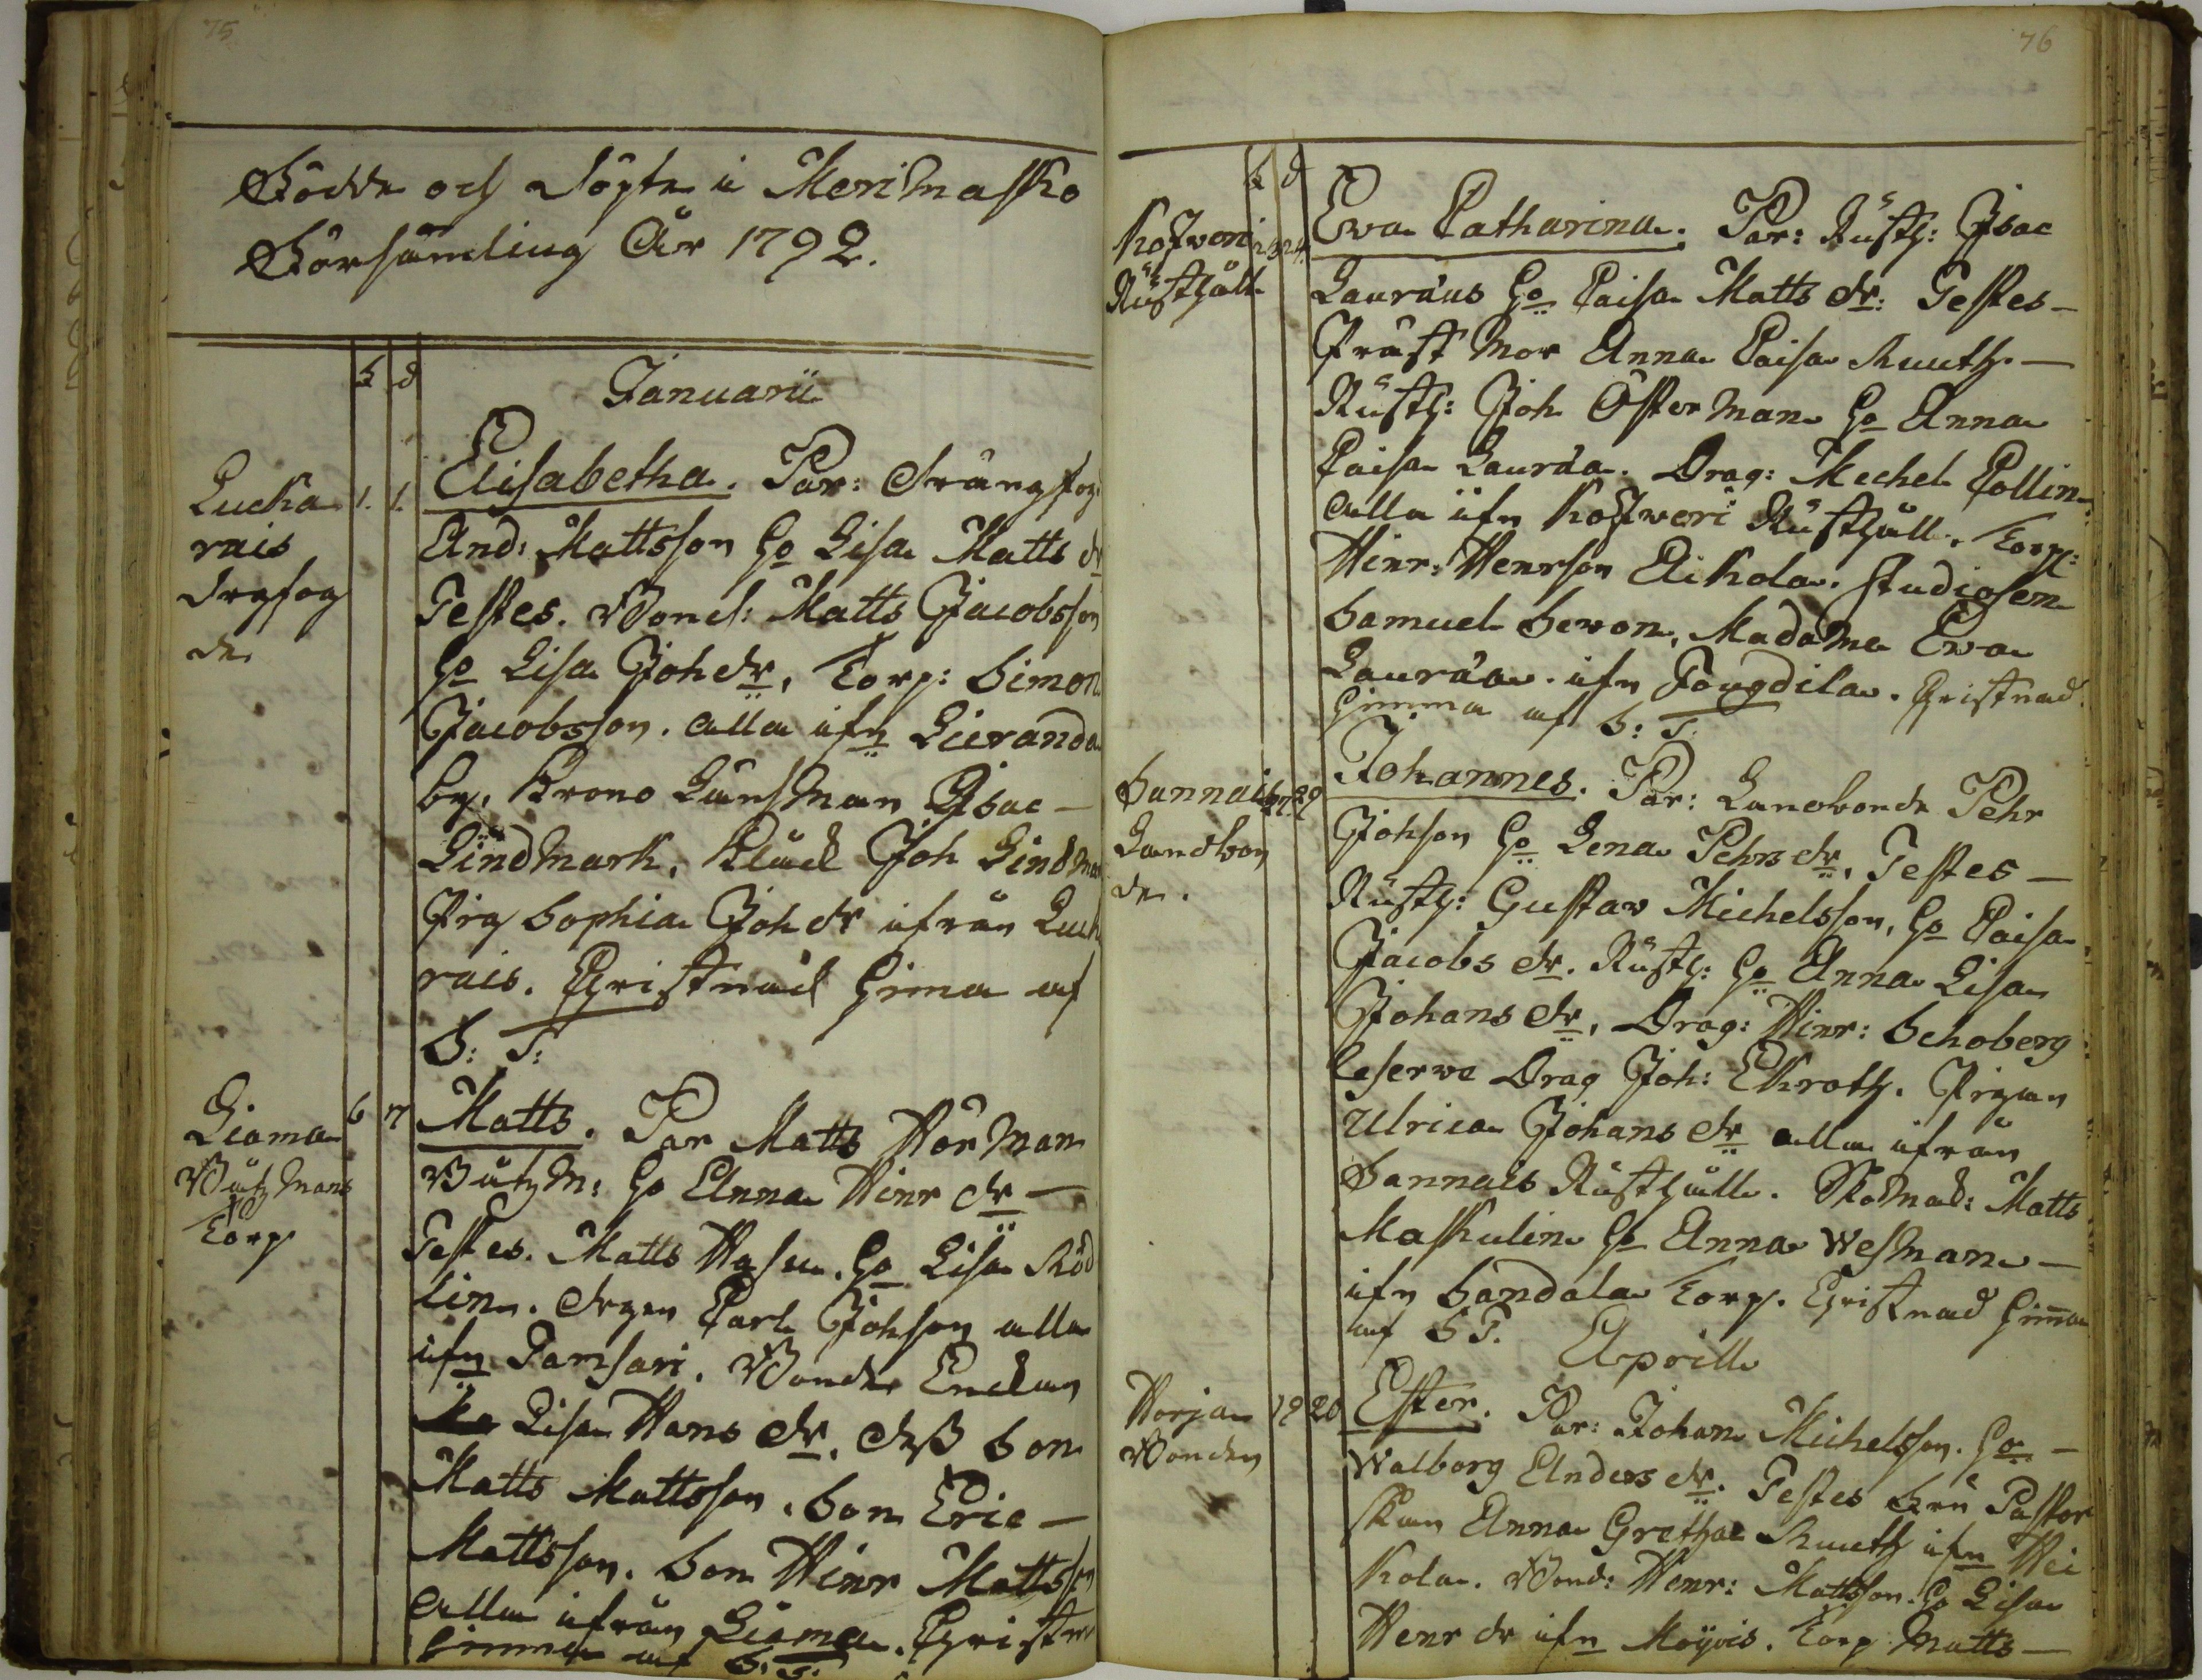 75
Födde och Döpte i Merimasko
Församling År 1792.
f d
Januarii
Lucka
rais
Drgfog
de
1. 1.
Elisabetha. Par: Drängfog
And: Mattsson Ho Lisa Matts dr
Testes. Bond: Matts Jacobsson
Ho Lisa Joh dr, Torp: Simon
Jacobsson. alla ifn Lieranda
by. Krono Länsman Isac –
Lindmark, Joh Lindmar
Pig Sophia Joh dr ifrån Luck
rais. Christnad hema af
S: T:
Liama
Båtzmans
Torp
6 7
Matts. Par Matts Hörman
Båtzm: Ho Anna Hinr dr –
Testes. Matts Hasu. Ho Lisa Röd
lin. Drgen Carl Johson alla
ifn Tamsari. Bonde Enckan
Lisa Hans dr. Dess Son
Matts Mattsson. Son Eric –
Mattsson. Son Hinr Mattsson
alla ifrån Liama. Christn
hemma af S: T:
76
f d
Kojveri
Rusthåll
23 24
Ewa Catharina. Par: Rusth: Isac
Lauræus Ho Caisa Matts dr: Testes –
Prästmor Anna Caisa Ruuth –
Rusth: Joh Österman Ho Anna
Caisa Lauræa. Drag: Mechel Collin
alla ifn Kojweri Rusthåll. Torp:
Hinr: Henrson Eikola. Studiosen
Samuel Sevon, Madame Ewa
Lauræa. ifn Fougdila. Christnad
hemma af S: T.
Sannais
Landbon
de.
27 29
Johannes. Par: Landbonde Pehr
Johson Ho Lena Pehrs dr, Testes –
Rusth: Gustav Michelsson, Ho Caisa
Jacobs dr. Rusth: Ho Anna Lisa
Johans dr, Drag: Hinr: Schoberg
Reserve Drag Joh: Ekroth. Pigan
Ulrica Johans dr alla ifrån
Sannais Rusthåll. Skomak: Matts
Maskulin Ho Anna Wesman –
ifn Sandala Torp. Christnad hemma
af S T.
Aprill
Horja
Bonden
19 20
Ester. Par: Johan Michelsson. Ho –
Walborg Anders dr. Testes Fru Pastor
skan Anna Gretha Ruuth ifn Hei
kola. Bond: Henr: Mattsson. Ho Lisa
Henr dr ifn Moijois. Torp Matts –